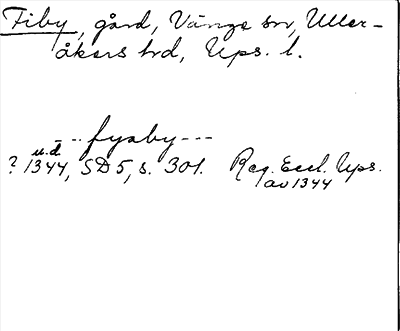 Fiby, gård, Vänge sn, Uller-
åkers hd, Ups. l.
- - - fysby - - -
u.d.
? 1344, SD 5, s. 301. Reg. Eccl. Ups.
av 1344